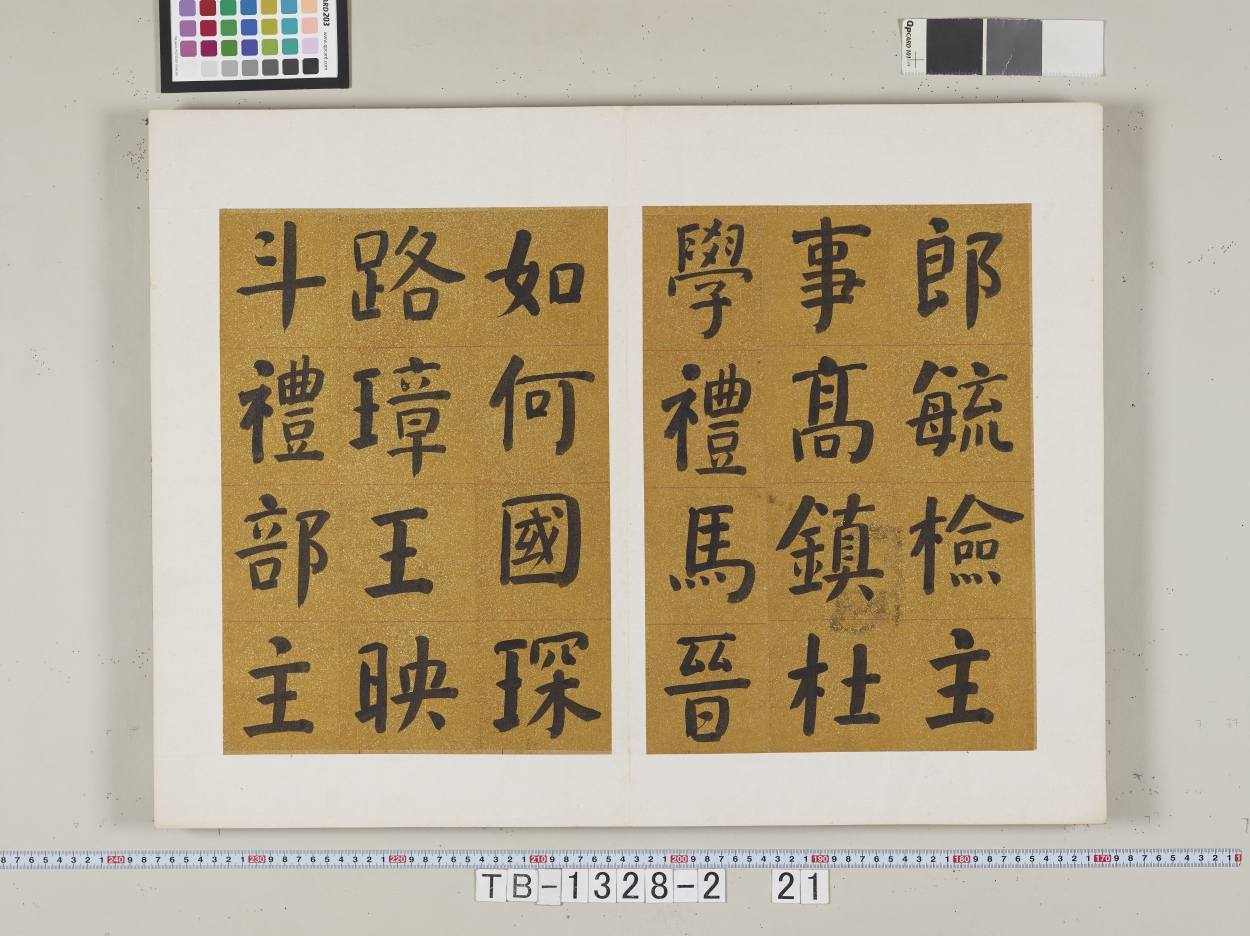 郎毓檢主
事髙鎮杜
學禮馬晉
如何國琛
路璋王映
斗禮部主
TB-1328-2 21